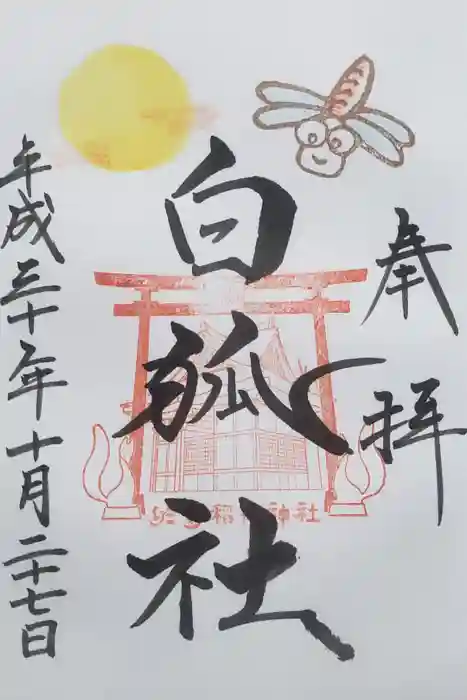 奉拝
白狐社
平成三十年十月二十七日